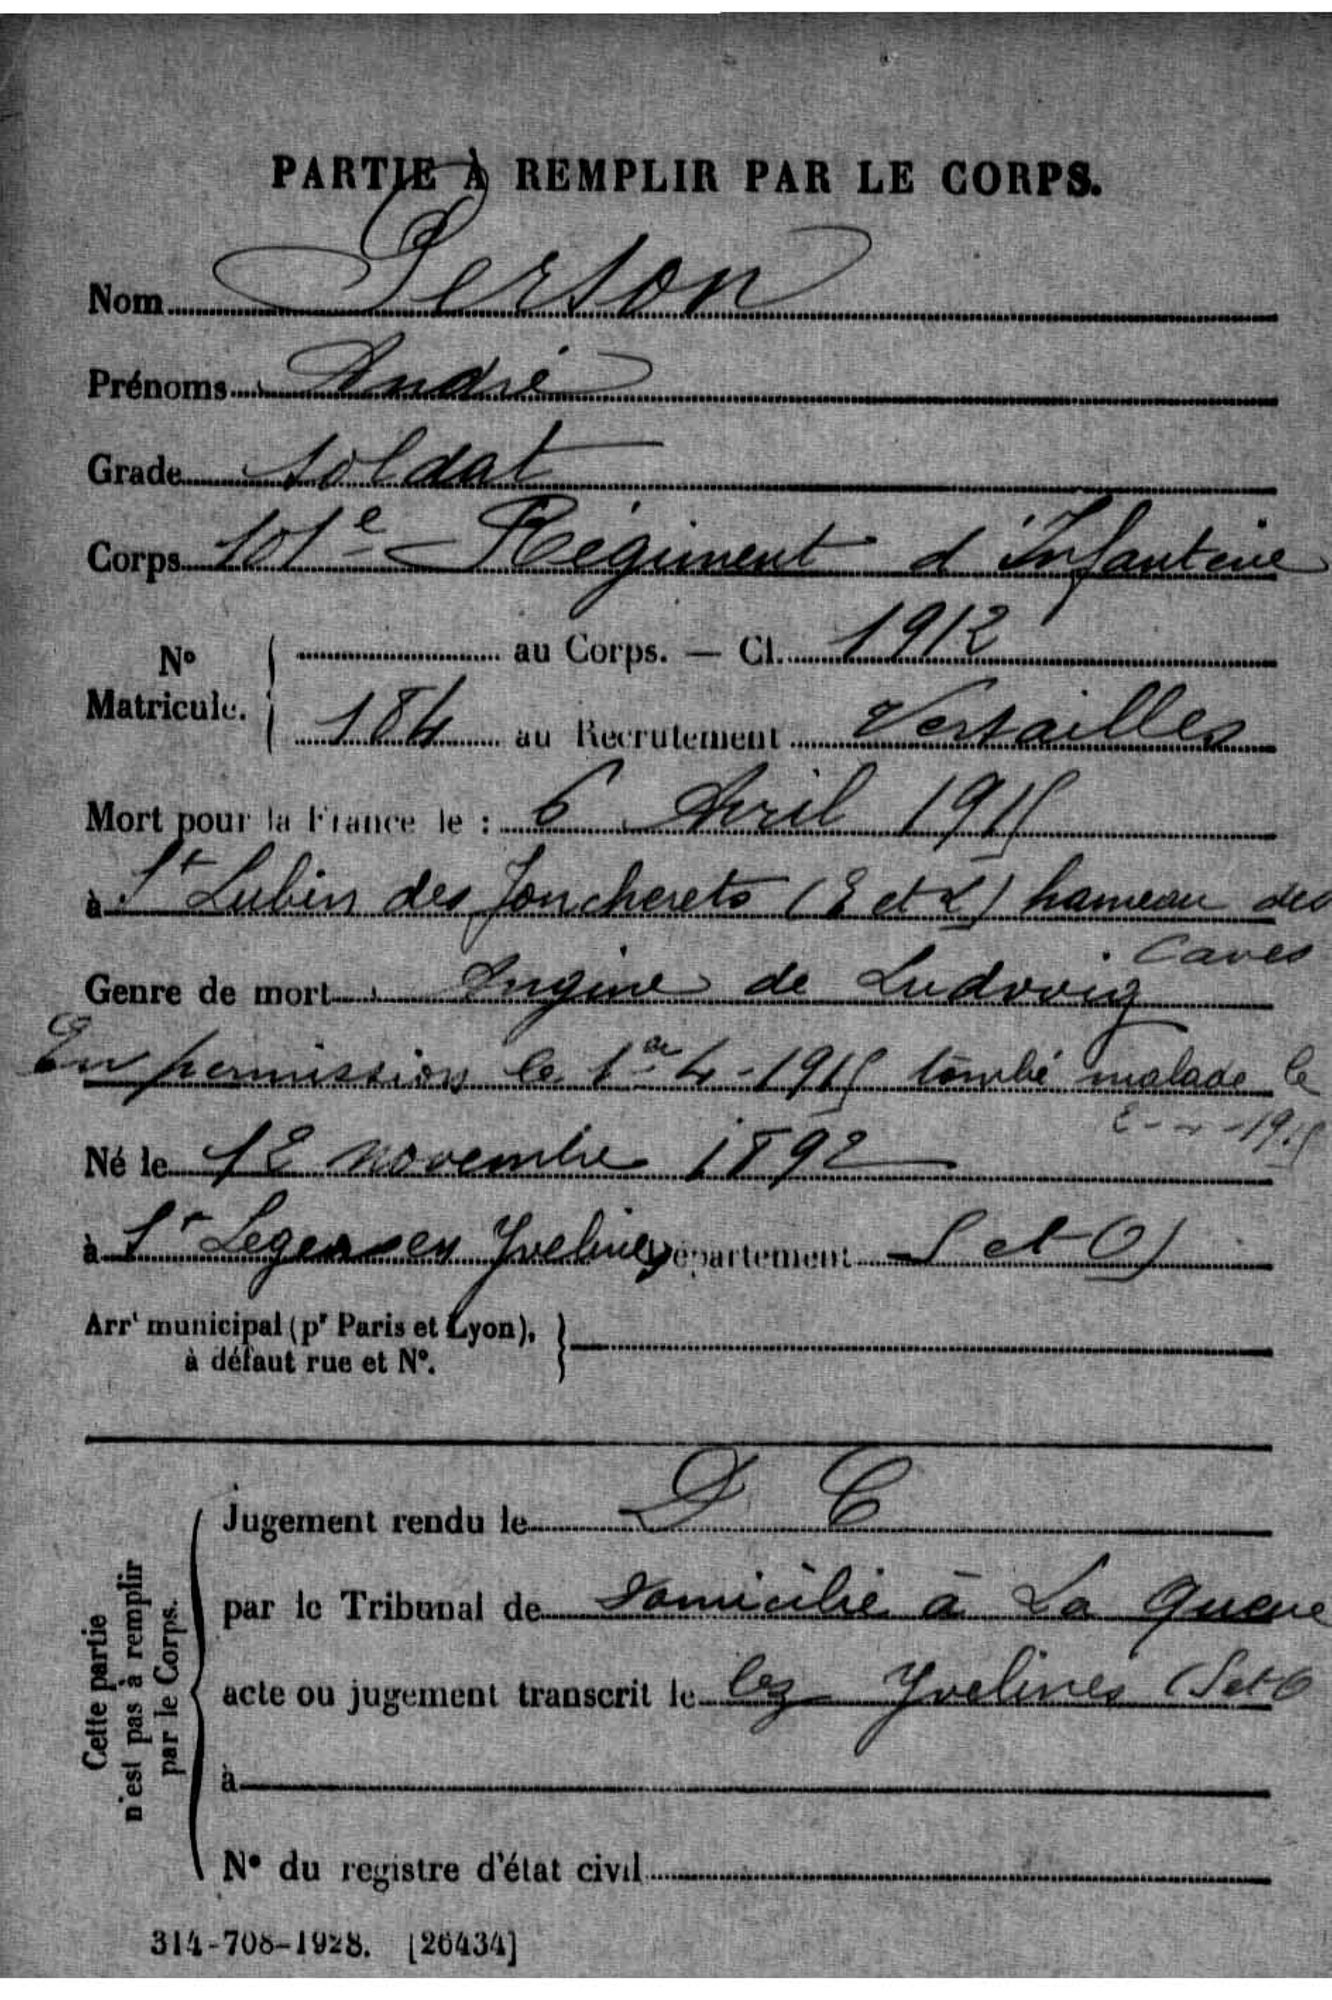 PARTIE À REMPLIR PAR LE CORPS.
Nom Person
Prénoms André
Grade soldat
Corps 101e Régiment d'Infanterie
No Matricule. au Corps. — Cl. 1912
184 au Recrutement Versailles
Mort pour la France le : 6 Avril 1915
à St Lubin des Joncherets (E et L) hameau des
Caves
Genre de mort Angine de Ludwig
En permission le 1er-4-1915 tombé malade le
2-4-1915
Né le 12 novembre 1892
à St Leger en Yvelines Département S et O)
Arrt municipal (pr Paris et Lyon),
à défaut rue et No.
Cette partie
n'est pas à remplir
par le Corps.
Jugement rendu le D C
par le Tribunal de domicilié à La Queue
acte ou jugement transcrit le lez Yvelines (S et O
à
No du registre d'état civil
314-708-1928. [26434]